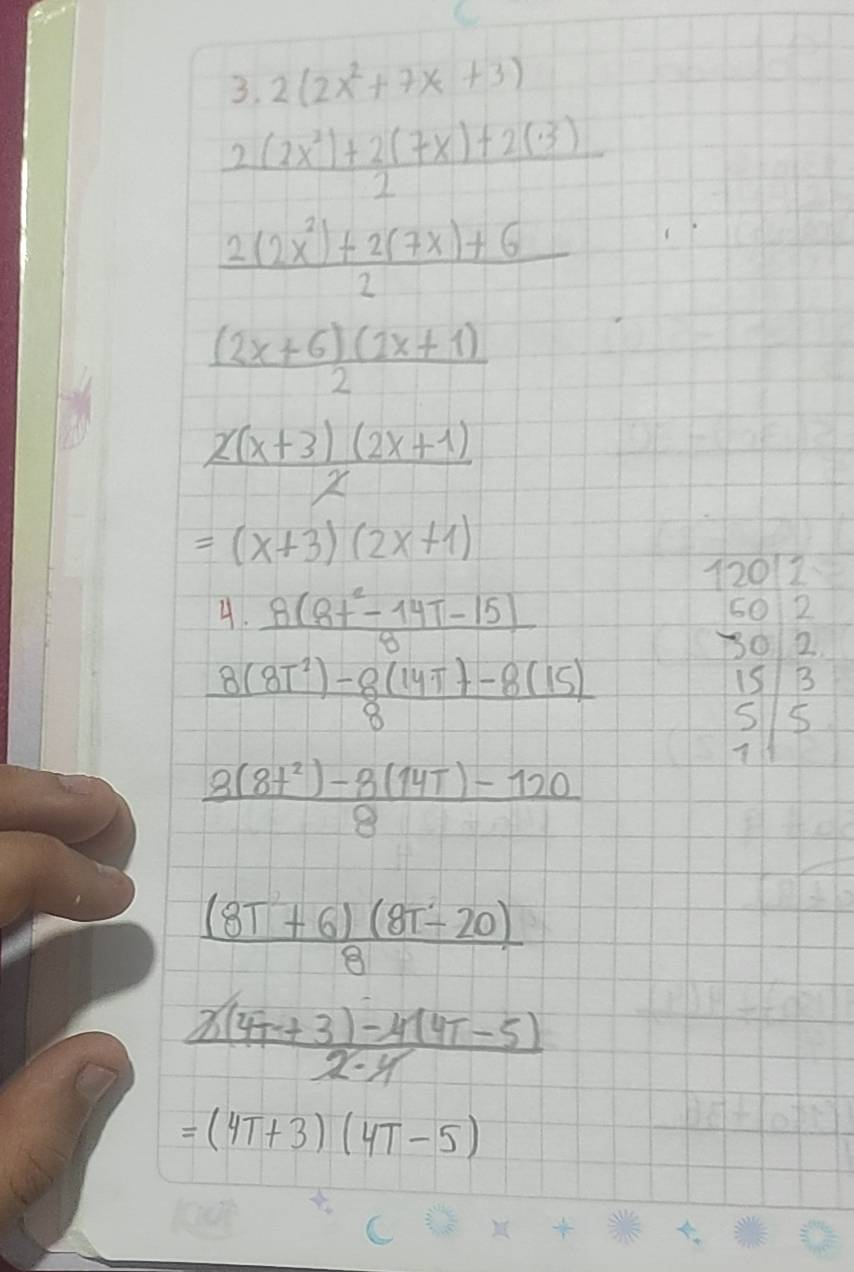 3. 2(2x² + 7x + 3)
2(2x²) + 2(7x) + 2(3)
2
2(2x²) + 2(7x) + 6
2
(2x + 6) (2x + 1)
2
2(x+3) (2x+1)
2
= (x+3) (2x+1)
4. 8(8t² - 14T - 15)
8
8(8T²) - 8(14T) - 8(15)
8
8(8t²) - 8(14T) - 120
8
(8T + 6) (8T - 20)
8
2(4T + 3) - 4(4T - 5)
2 · 4
= (4T + 3) (4T - 5)
120 | 2
60 | 2
30 | 2
15 | 3
5 | 5
1 |